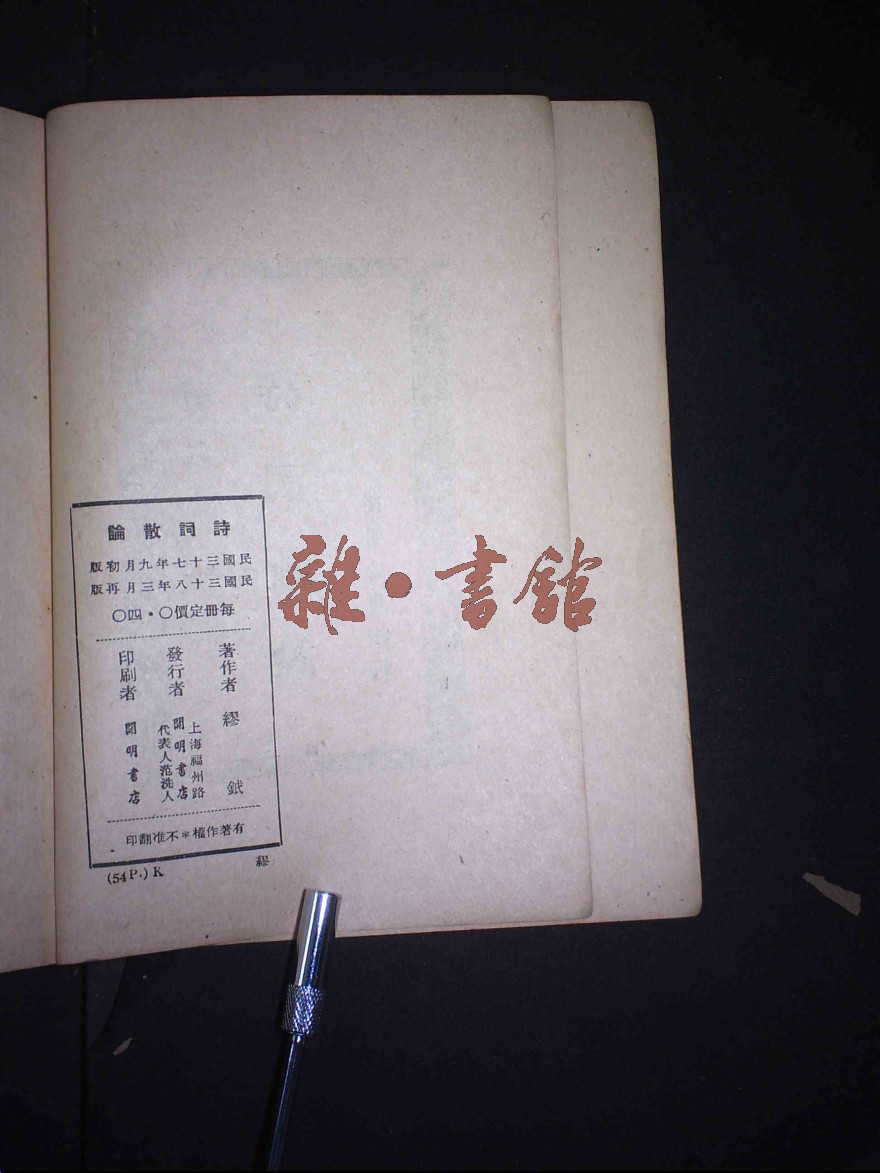 詩詞散論
民國三十七年九月初版
民國三十八年三月再版
每冊定價〇·四〇
著作者 繆鉞
發行者
上海福州路
開明書店
代表人范洗人
印刷者 開明書店
有著作權*不准翻印
(54P.) K
繆
雜·書館